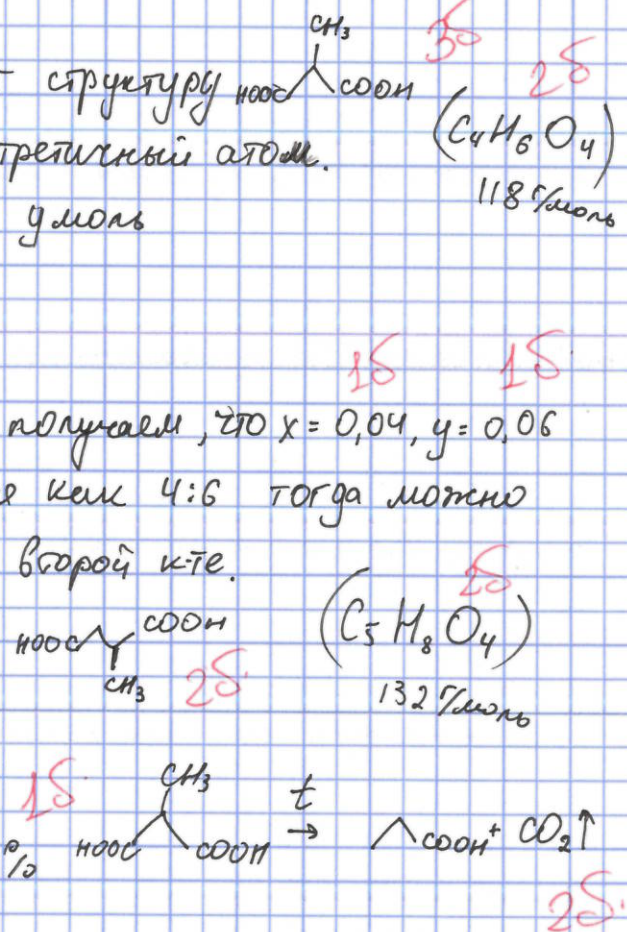 CH₃ 3б
структуру HOOC COOH 2б
(C₄H₆O₄)
третичный атом.
118 г/моль
y моль
1б 1б
получаем, что x = 0,04, y = 0,06
как 4:6 тогда можно
второй к-те.
HOOC COOH (C₅H₈O₄) 2б
CH₃ 2б.
132 г/моль
1б CH₃
% HOOC COOH t → COOH + CO₂↑
2б.